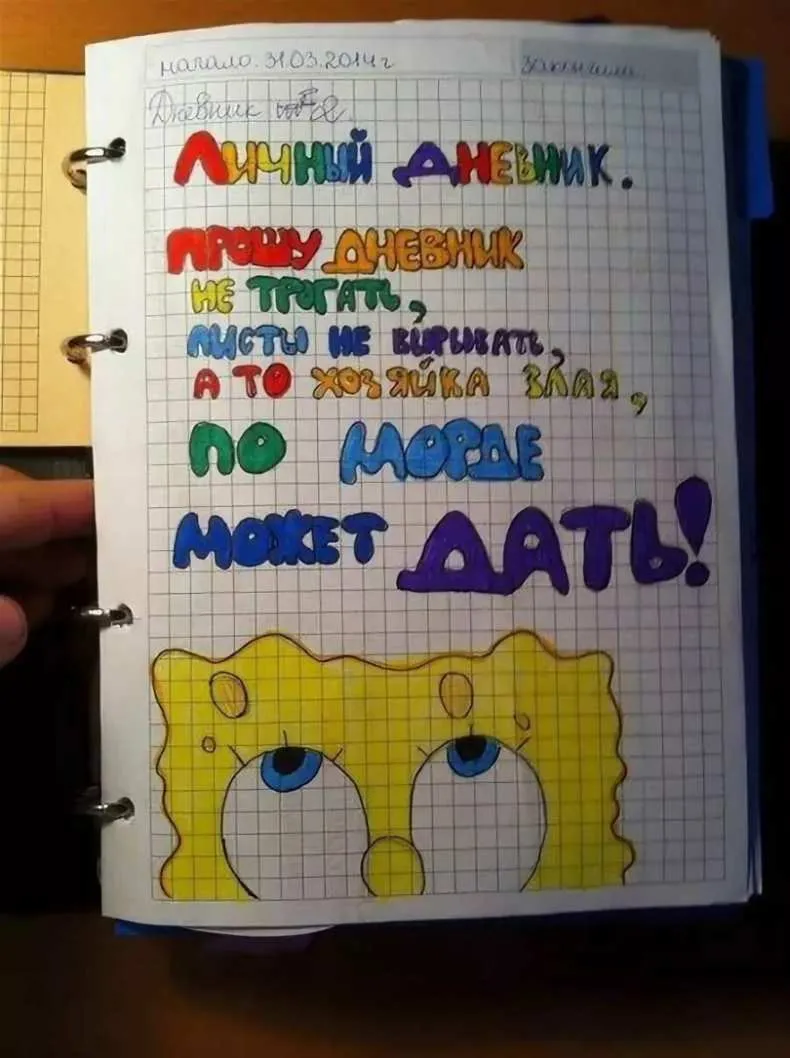 начало. 31.03.2014г
закончила.
Дневник
Личный дневник.
прошу дневник
не трогать,
листы не вырывать,
а то хозяйка злая,
по морде
может дать!